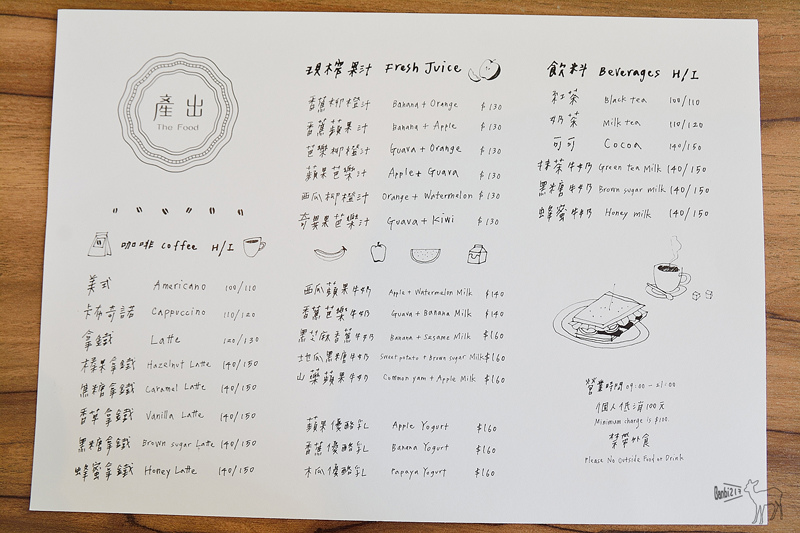 產出
The Food
咖啡 Coffee H/I
美式 Americano 100/110
卡布奇諾 Cappuccino 110/120
拿鐵 Latte 120/130
榛果拿鐵 Hazelnut Latte 140/150
焦糖拿鐵 Caramel Latte 140/150
香草拿鐵 Vanilla Latte 140/150
黑糖拿鐵 Brown sugar Latte 140/150
蜂蜜拿鐵 Honey Latte 140/150
現榨果汁 Fresh Juice
香蕉柳橙汁 Banana + Orange $130
香蕉蘋果汁 Banana + Apple $130
芭樂柳橙汁 Guava + Orange $130
蘋果芭樂汁 Apple + Guava $130
西瓜柳橙汁 Orange + Watermelon $130
奇異果芭樂汁 Guava + Kiwi $130
西瓜蘋果牛奶 Apple + Watermelon Milk $140
香蕉芭樂牛奶 Guava + Banana Milk $140
黑芝麻香蕉牛奶 Banana + Sesame Milk $160
地瓜黑糖牛奶 Sweet potato + Brown sugar Milk $160
山藥蘋果牛奶 Common yam + Apple Milk $160
蘋果優酪乳 Apple Yogurt $160
香蕉優酪乳 Banana Yogurt $160
木瓜優酪乳 Papaya Yogurt $160
飲料 Beverages H/I
紅茶 Black tea 100/110
奶茶 Milk tea 110/120
可可 Cocoa 140/150
抹茶牛奶 Green tea Milk 140/150
黑糖牛奶 Brown sugar milk 140/150
蜂蜜牛奶 Honey milk 140/150
營業時間 09:00-21:00
個人低消100元
Minimum charge is $100.
禁帶外食
Please No Outside Food or Drink
Banbi217